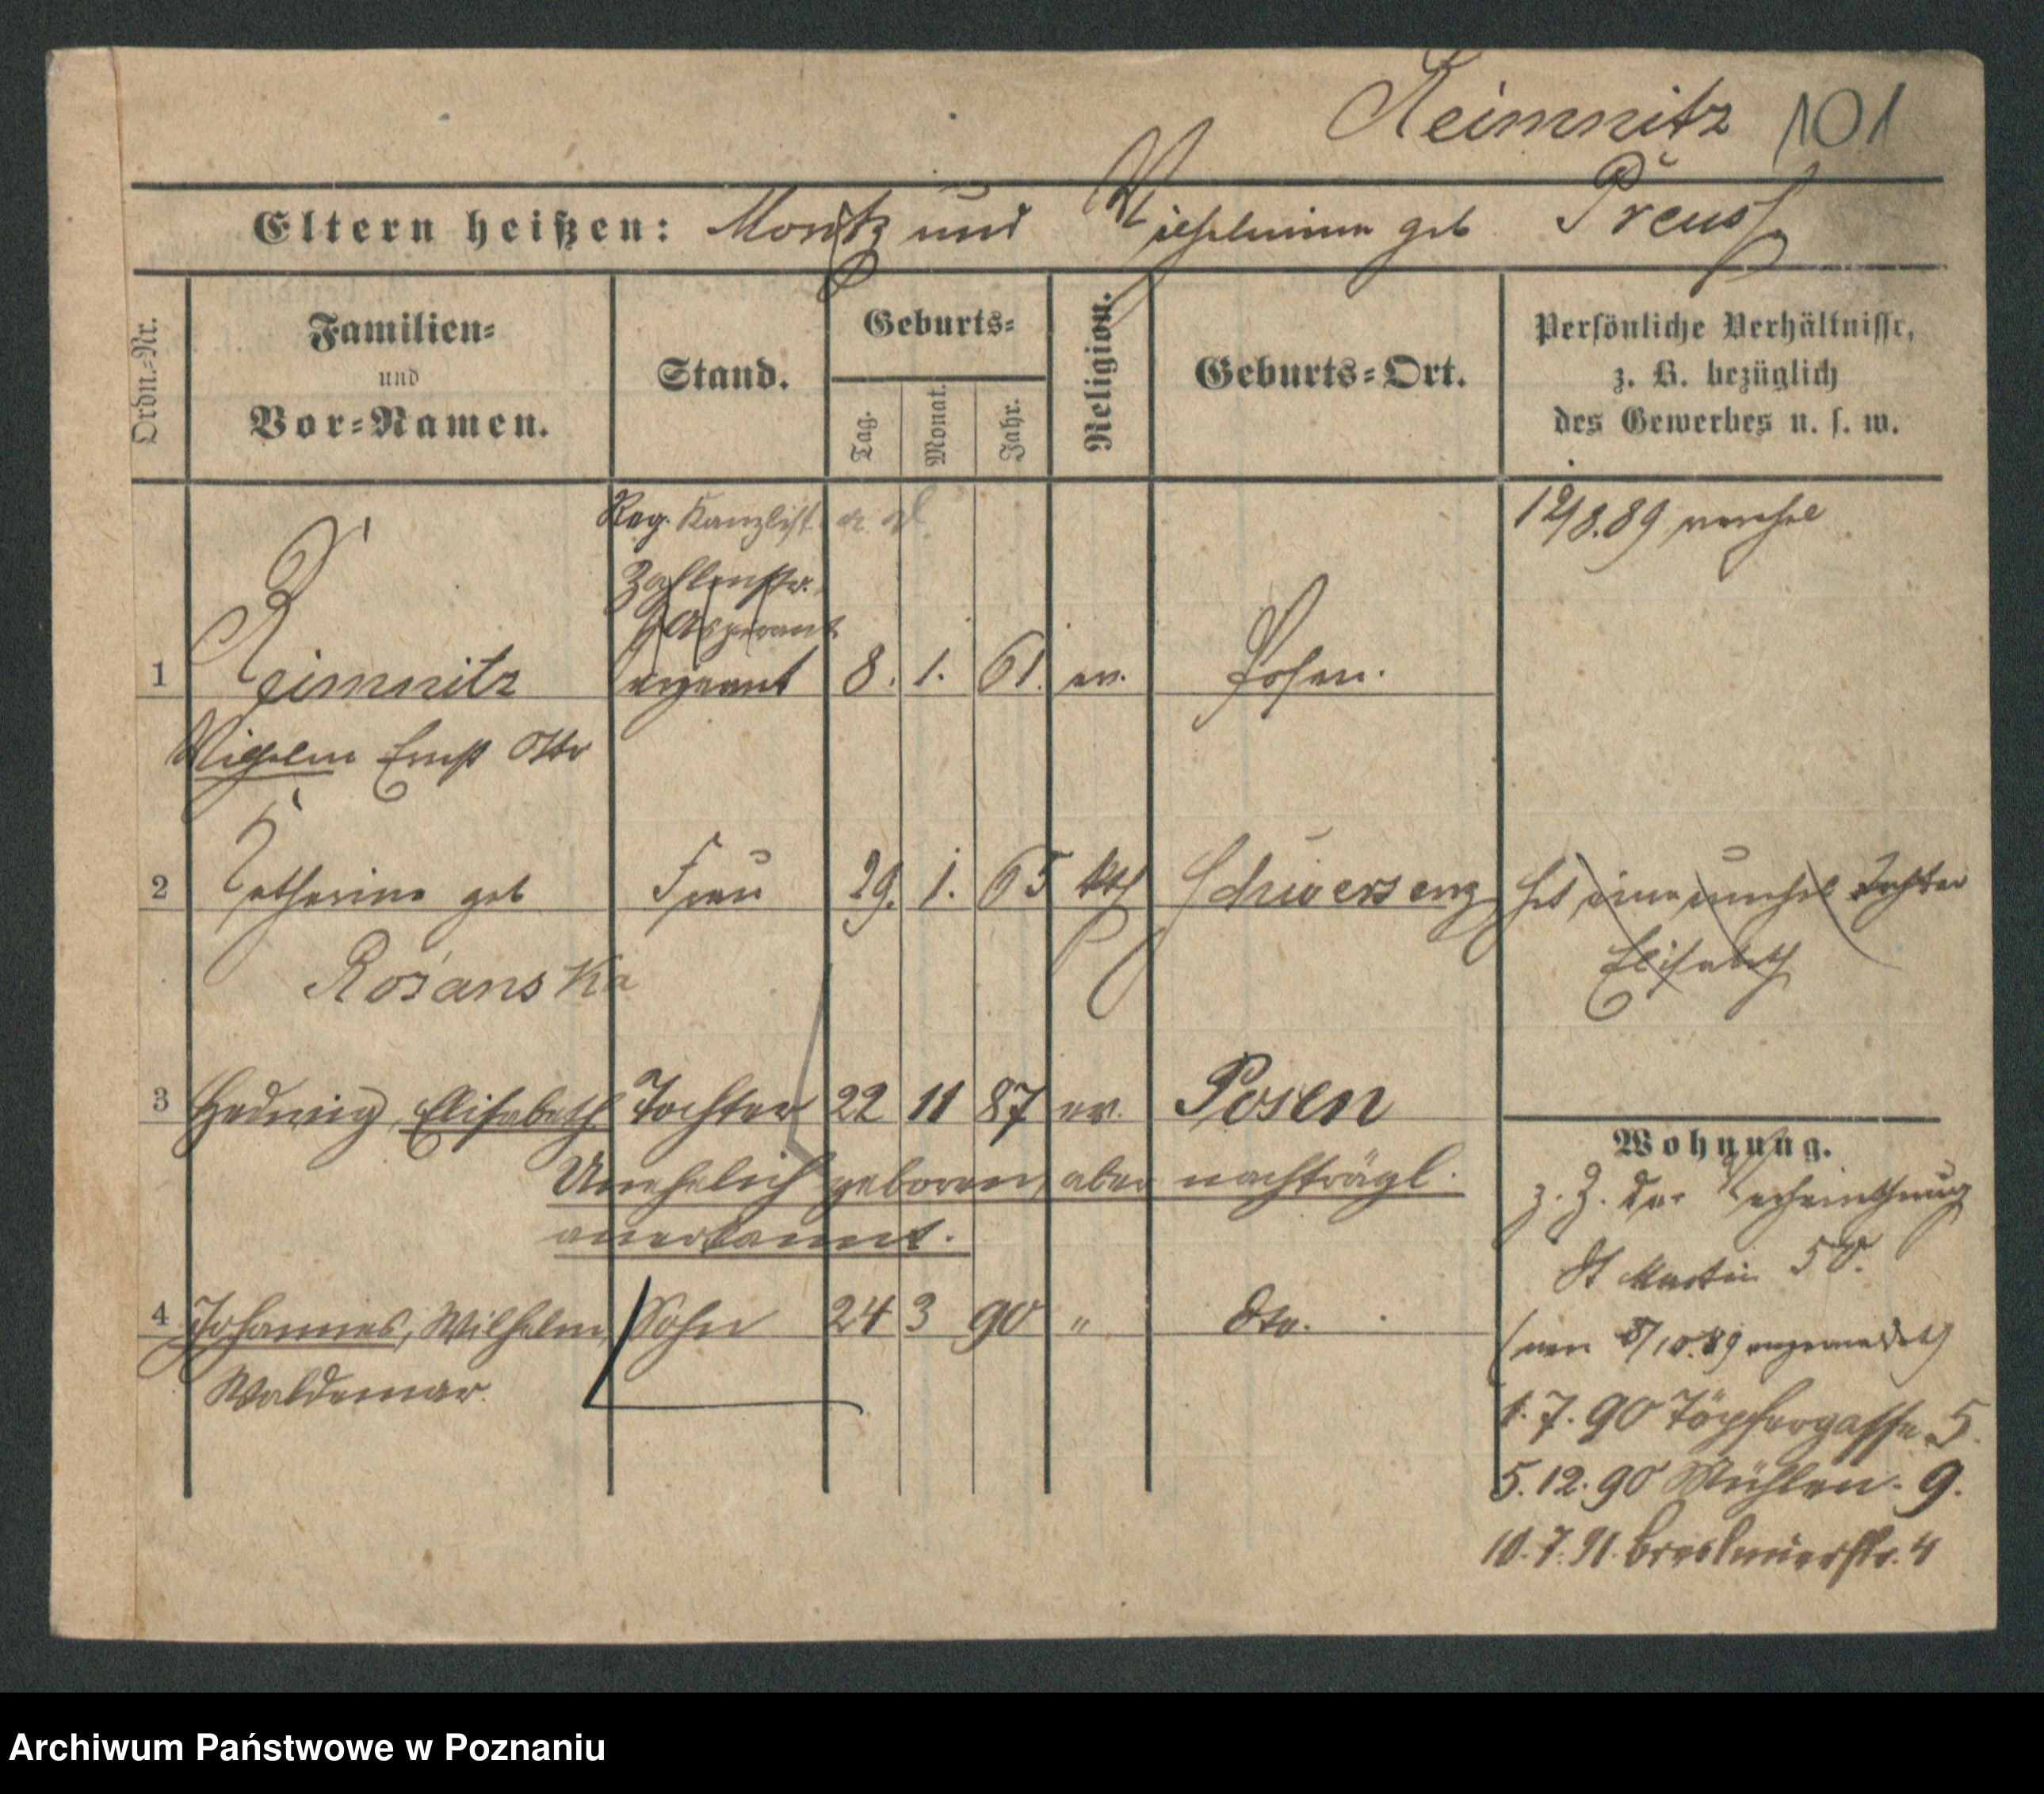 Reimnitz 101
Eltern heißen: Moritz und Wilhelmine geb. Preuss
Ordn.-Nr.
Familien-
und
Vor-Namen.
Stand.
Geburts-
Tag.
Monat.
Jahr.
Religion.
Geburts-Ort.
Persönliche Verhältnisse,
z. B. bezüglich
des Gewerbes u. s. w.
Reg. Kanzlist
Zahlmstr.
Aspirant
12/8.89 verehel
1 Reimnitz Sergeant 8. 1. 61. ev. Posen.
Wilhelm Ernst Otto
2 Katharina geb Frau 29. 1. 65 kth Schwersenz hat eine unehel Tochter
Rosanska
Elisabeth
3 Hedwig, Elisabeth Tochter 22 11 87 ev. Posen
Unehelich geboren, aber nachträgl.
anerkannt.
4 Johannes, Wilhelm, Sohn 24 3 90 " dto.
Waldemar.
Wohnung.
z. Z. der Verheirathung
St Martin 50.
8/10.89 angemeldet)
1.7.90 Töpfergasse 5.
5.12.90 Mühlen. 9.
10.7.91. Breslauerstr. 4
Archiwum Państwowe w Poznaniu